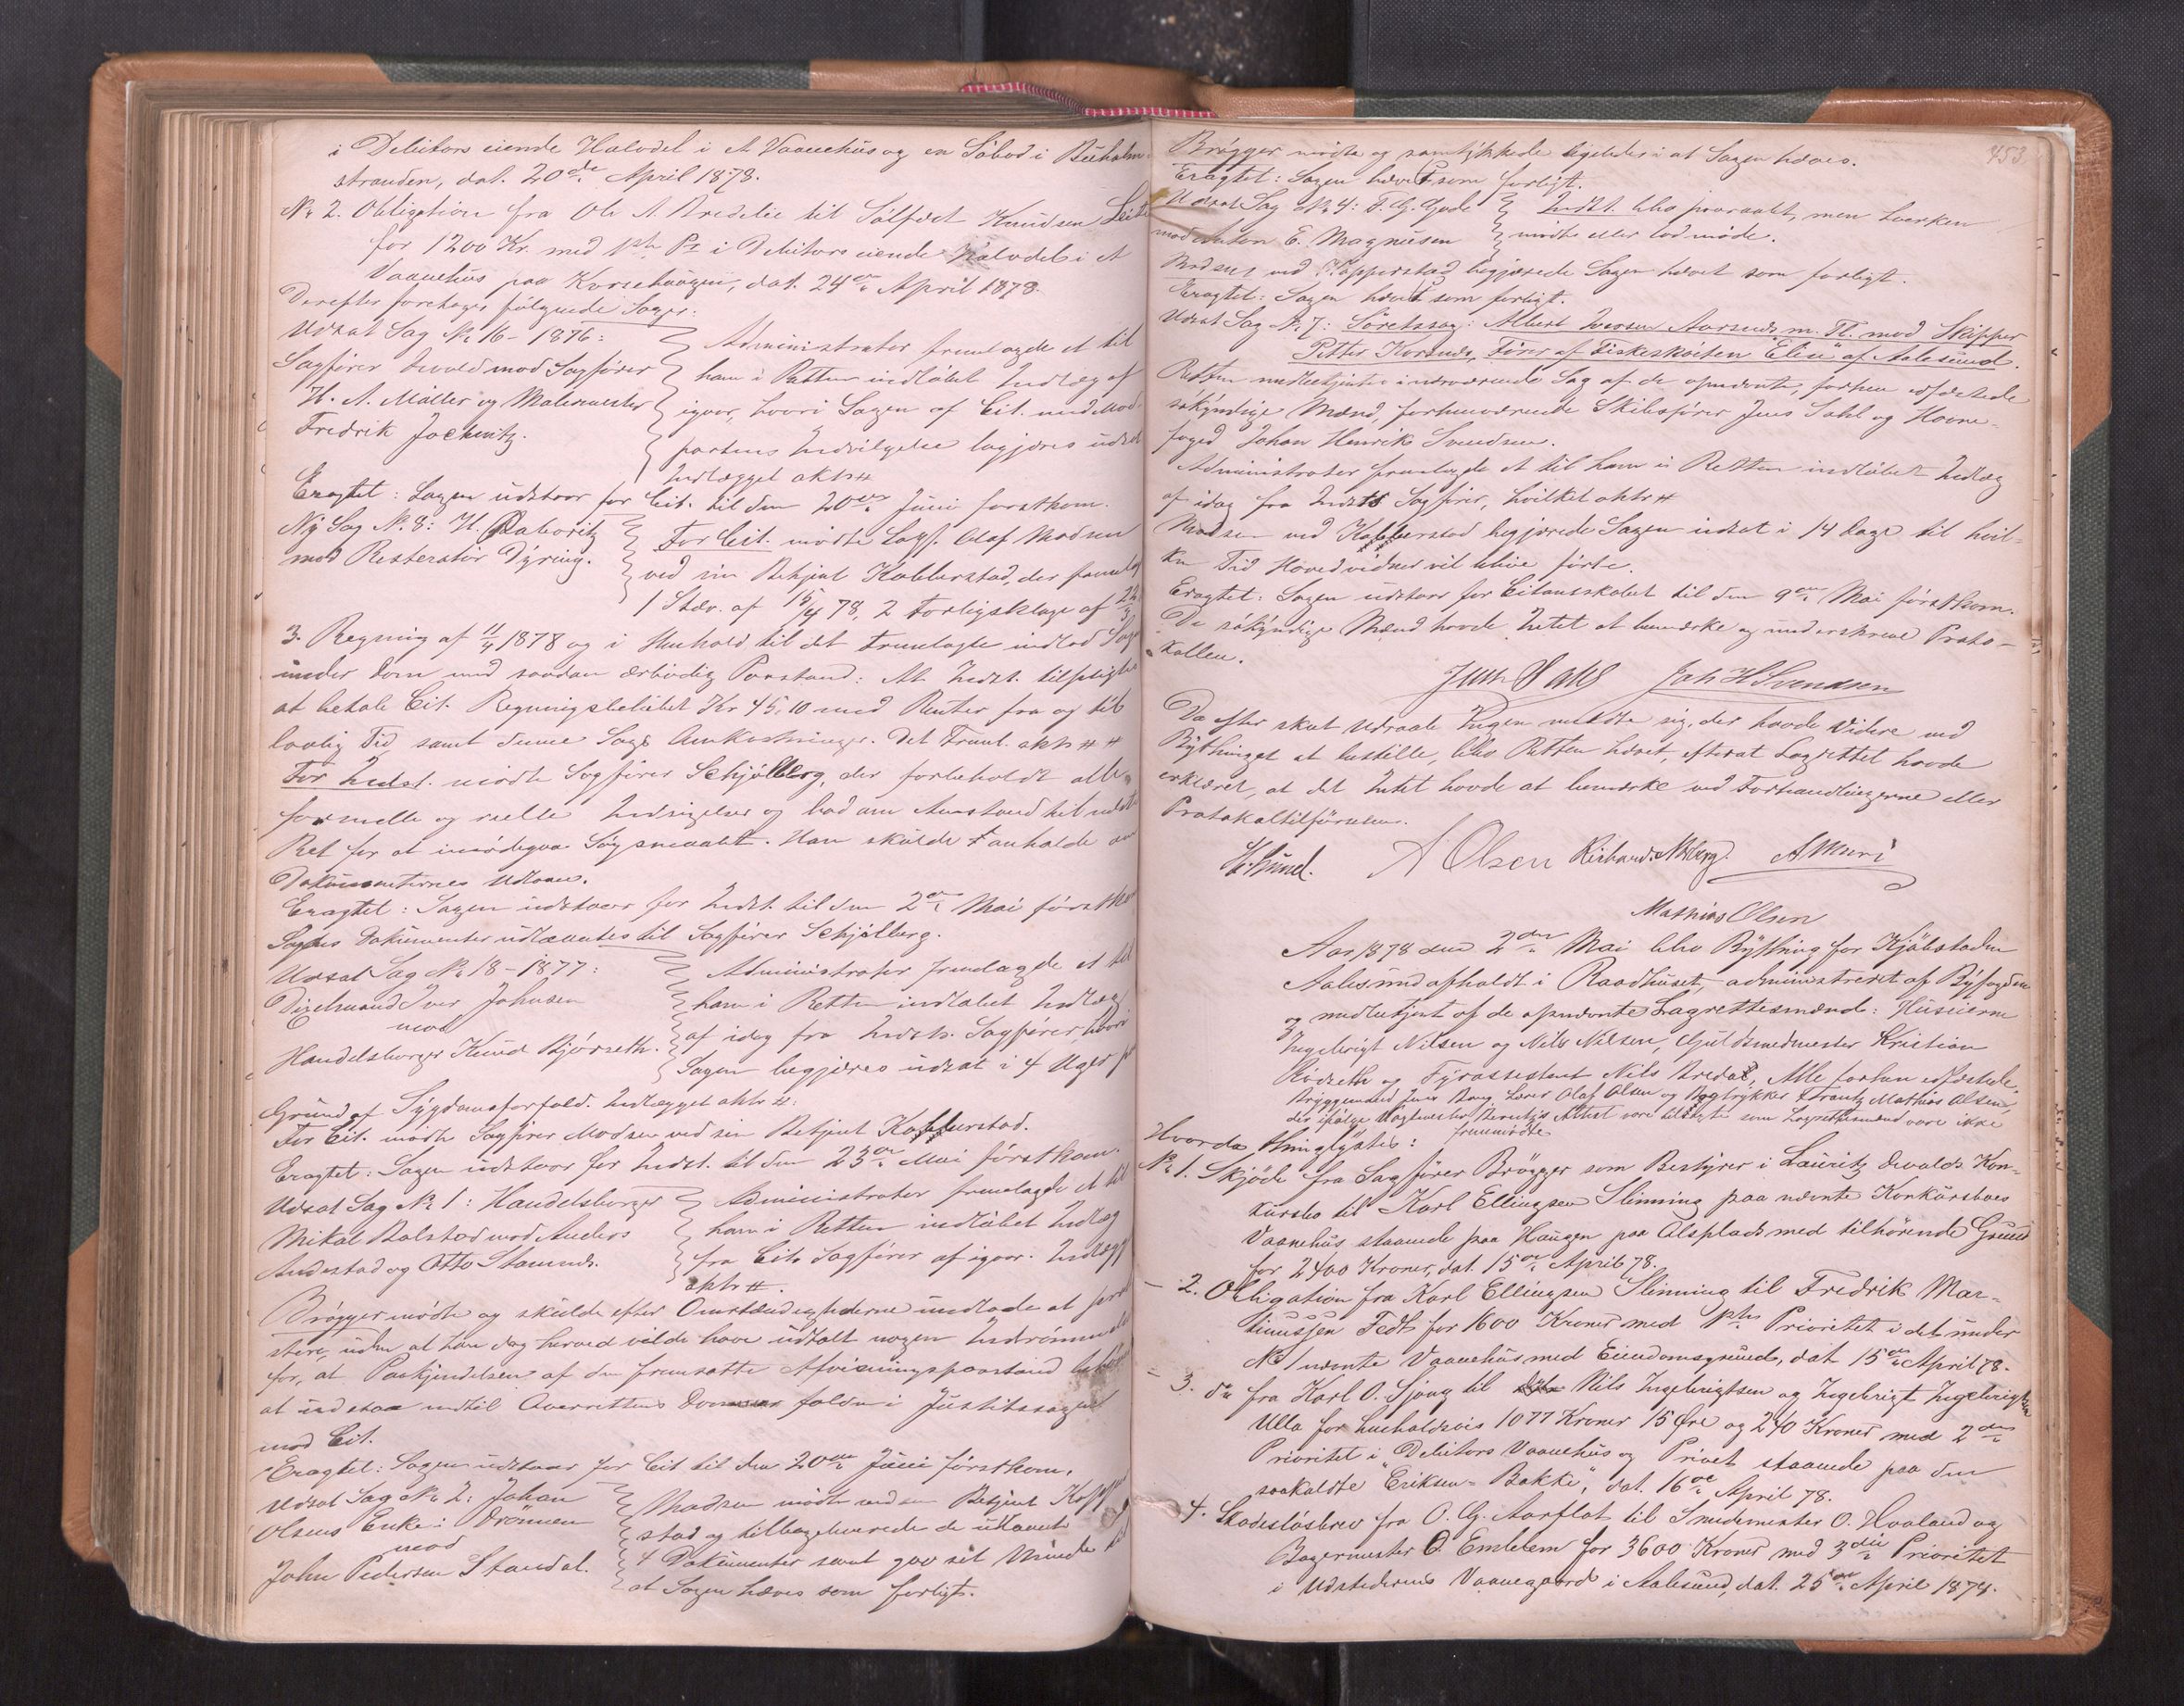 i Debitors eiende Halvdel i et Vaanehus og en Søbod i Buholm-
stranden, dat. 20de April 1878.
No 2. Obligation fra Ole A. Bredelie til Sølfest Knudsen
for 1200 Kr. med 1ste Pr i Debitors eiende Halvdel i et
Vaanehus paa Korsehaugen, dat. 24de April 1878.
Derefter foretoges følgende Sager:
Udsat Sag No 16-1876:
Sagfører Devold mod Sagfører
H. A. Møller og Malermester
Fredrik Jochwitz.
Administrator fremlagde et til
ham i Retten indløbet Indlæg af
igaar, hvori Sagen af Cit. med Mod-
partens Indvilgelse begjæres udsat
Indlægget akts #
Eragtet: Sagen udstaar for Cit. til den 20de Juni førstkom.
Ny Sag No. 8: H. Daboritz
mod Restauratør Dyring.
For Cit. mødte Sagf. Olaf Madsen
ved sin Betjent Kobberstad, der fremlag
1 Stæv. af 15/4 78, 2 Forligsklage af
3. Regning af 11/4 1878 og i Henhold til det Fremlagte indlod Sagen
under Dom med saadan ærbødig Paastand: At Indst. tilpligtes
at betale Cit. Regningsbeløbet Kr 45,10 med Renter fra og til
lovlig Tid, samt denne Sags Omkostninger. Det Freml. akts # #
For Indst. mødte Sagfører Schjølberg, der forbeholdt alle
formelle og reelle Indsigelser og bad om Anstand til næste
Ret for at imødegaa Søgsmaalet. Han skulde anholde om
Dokumenternes Udlaan.
Eragtet: Sagen udstaar for Indst. til den 2den Mai førstkom
Sagens Dokumenter udlaantes til Sagfører Schjølberg.
Udsat Sag No 18-1877:
Iver Johnsen
mod
Handelsborger Knud Bjørseth.
Administrator fremlagde et til
ham i Retten indløbet Indlæg
af idag fra Indst. Sagfører, hvori
Sagen begjæres udsat i 4 Uger paa
Grund af Sygdomsforfald. Indlægget akts #.
For Cit. mødte Sagfører Madsen ved sin Betjent Kobberstad.
Eragtet: Sagen udstaar for Indst. til den 23de Mai førstkom.
Udsat Sag No 1: Handelsborger
Mikal Balstad mod Anders
Andestad og Otto Stamnes.
Administrator fremlagde et til
ham i Retten indløbet Indlæg
fra Cits Sagfører af igaar. Indlægg
akts #.
Brøgger mødte og skulde efter Omstændighederne undlade at prote
stere, uden at han dog herved vilde have udtalt nogen Indrømmelse
for, at Paakjendelsen af den fremsatte Afvisningspaastand
at udstaa indtil Overrettens Dom falder i Justitssagen
mod Cit.
Eragtet: Sagen udstaar for Cit til den 20de Juni førstkom.
Udsat Sag No 2: Johan
Olsens Enke i Drønnen
mod
John Pedersen Standal.
Madsen mødte ved sin Betjent Kopper
stad og tilbageleverede de udlaante
4 Dokumenter samt gav sit Minde til
at Sagen hæves som forligt.
453
Brøgger mødte og samtykkede ligeledes i at Sagen hæves.
Eragtet: Sagen hævet som forligt.
Udsat Sag No 4: T. G. Gode
mod Anton E. Magnusen
Indst. blev paaraabt, men hverken
mødte eller lod møde.
Madsen ved Kopperstad begjærede Sagen hævet som forligt.
Eragtet: Sagen hævet som forligt.
Udsat Sag No 7: Søretssag: Albert Iversen Aarsnes m. Fl. mod Skipper
Petter Korsnes, Fører af Fiskeskøiten "Elin" af Aalesund.
Retten medbetjentes i nærværende Sag af de opnævnte, forhen edfæstede
søkyndige Mænd, forhenværende Skibsfører Jens Dahl og Havne-
foged Johan Henrik Svendsen.
Administrator fremlagde et til ham i Retten indløbet Indlæg
af idag fra Indsts Sagfører, hvilket akts #
Madsen ved Kobberstad begjærede Sagen udsat i 14 Dage til hvil-
ken Tid Hovedvidner vil blive førte.
Eragtet: Sagen udstaar for Citantskabet til den 9de Mai førstkom.
De søkyndige Mænd havde Intet at bemærke og underskrev Proto-
kollen.
Jens Dahl Joh H Svendsen
Da efter skeet Udraab Ingen meldte sig, der havde Videre ved
Bythinget at bestille, blev Retten hævet, efterat Lagrettet havde
erklæret, at det Intet havde at bemærke ved Forhandlingerne eller
Protokoltilførselen.
A Olsen
Mathias Olsen
Aar 1878 den 2den Mai blev Bything for Kjøbstaden
Aalesund afholdt i Raadhuset, administreret af Byfogden
og medbetjent af de opnævnte Lagrettesmænd: Huseierne
Ingebrigt Nilsen og Nils Nilsen, Guldsmedmester Kristian
Rødseth og Fyrassistent Nils Bredal, Alle forhen edfæstede,
Bryggemand Jens Berg, Lærer Olaf Olsen og Bogtrykker Frantz Mathias Olsen,
der ifølge Vagtmester Attest vare tilsagte som Lagrettesmænd vare ikke
fremmødte
Hvorda thinglystes:
No 1. Skjøde fra Sagfører Brøgger som Bestyrer i Lauritz Devolds Kon-
kursbo til Karl Ellingsen Slinning paa nævnte Konkursboes
Vaanehus staaende paa Haugen paa Alsplads med tilhørende Grund
for 2400 Kroner, dat. 15de April 78.
- 2. Obligation fra Karl Ellingsen Slinning til Fredrik Mar-
tinussen Fedts for 1600 Kroner med 1ste Prioritet i det under
No 1 nævnte Vaanehus med Eiendomsgrund, dat 15de April 78.
- 3. do fra Karl O. Sjong til Nils Ingebrigtsen og Ingebrigt Ingebrigtsen
Ulla for henholdsvis 1077 Kroner 15 Øre og 240 Kroner med 2den
Prioritet i Debitors Vaanehus og Privet staaende paa den
saakaldte "Eriksen-Bakke", dat. 16de April 78.
4. Skadesløsbrev fra O. G. Aarflot til Smedemester O. Hvaland og
Bagermester O. Emblem for 3600 Kroner med 3die Prioritet
i Udstederens Vaanegaard i Aalesund, dat. 25de April 1878.